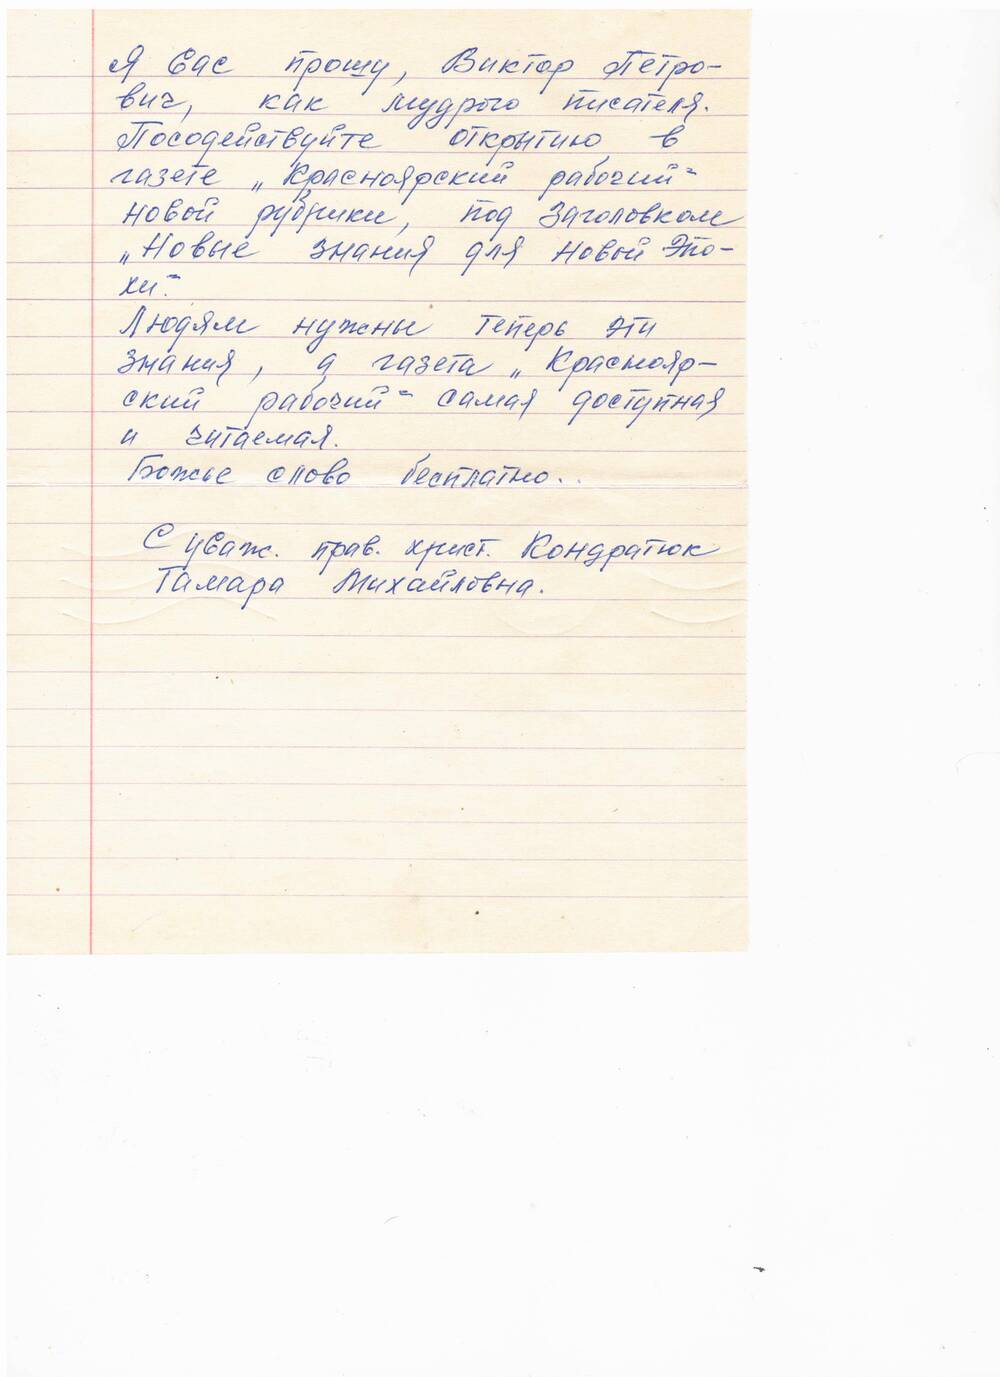 Я Вас прошу, Виктор Петро-
вич, как мудрого писателя.
Посодействуйте открытию в
газете „Красноярский рабочий“
новой рубрики, под заголовком
„Новые знания для новой Эпо-
хи“.
Людям нужны теперь эти
знания, а газета „Краснояр-
ский рабочий“ самая доступная
и читаемая.
Божье слово бесплатно..
С уваж. прав. христ. Кондратюк
Тамара Михайловна.